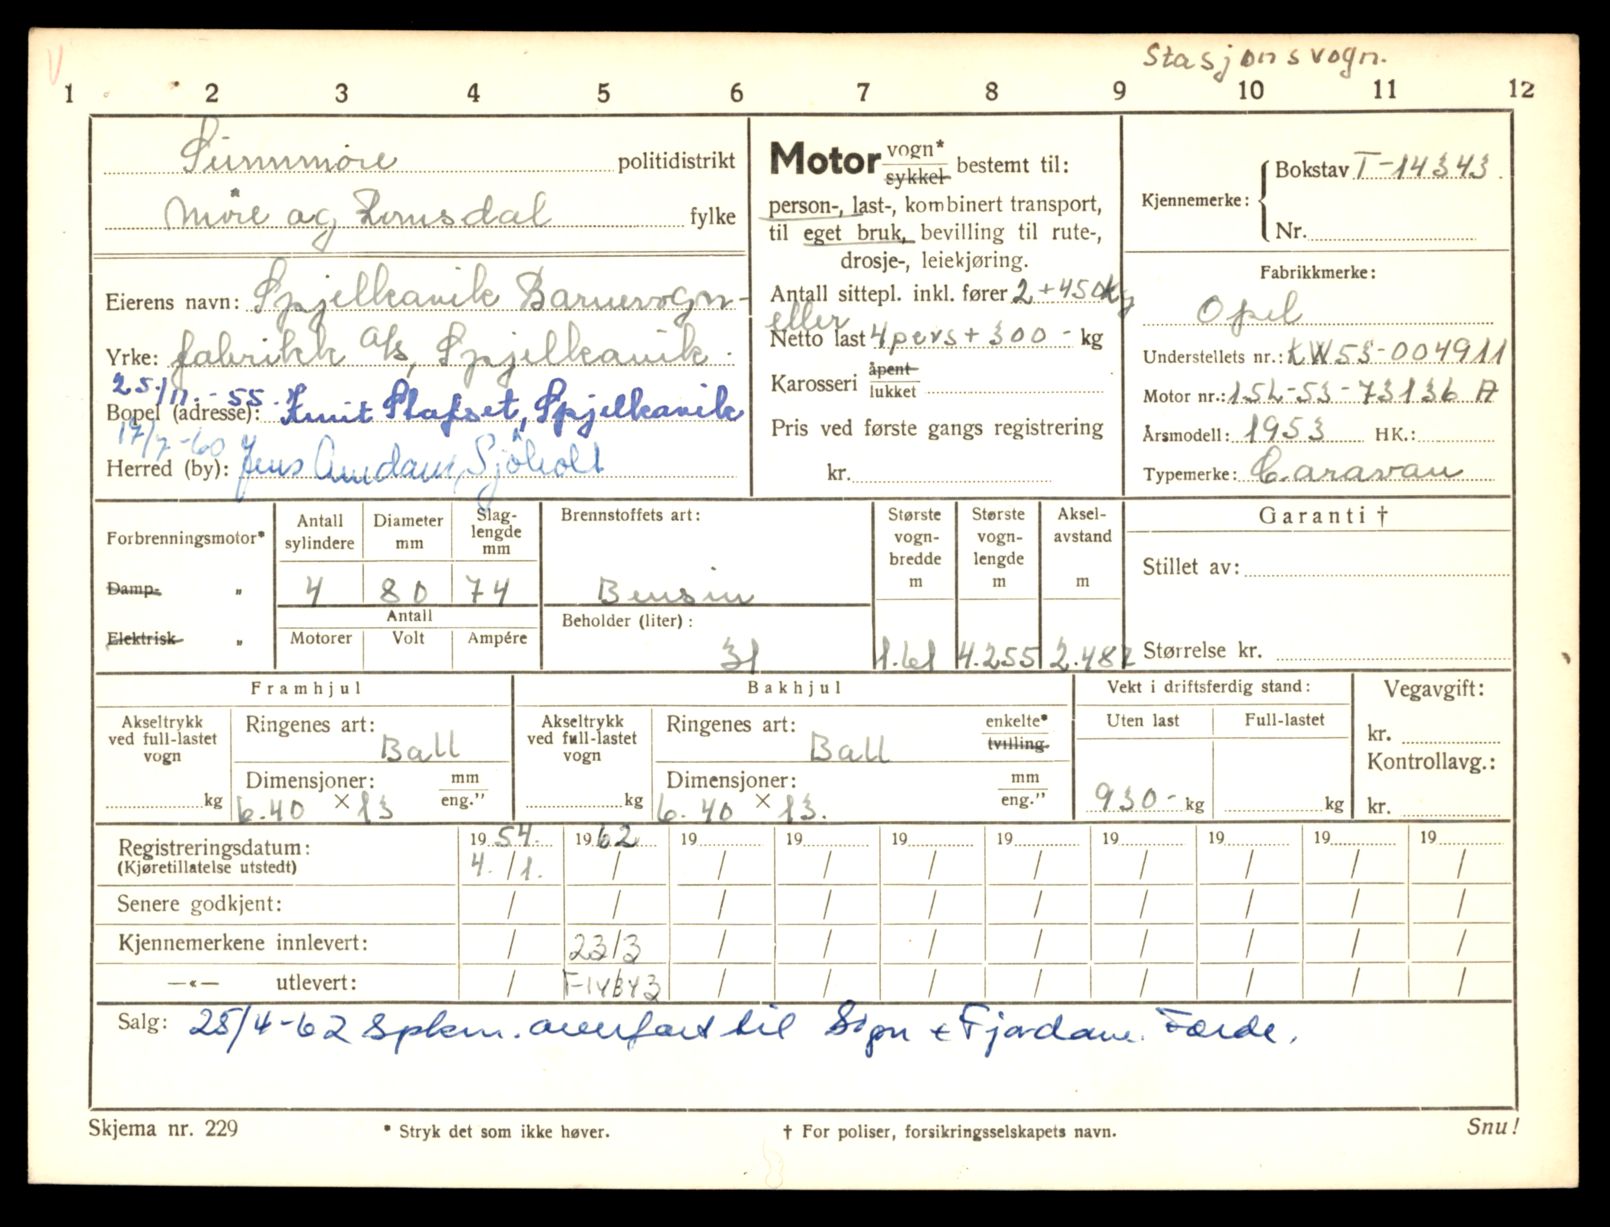 Stasjonsvogn.
1 2 3 4 5 6 7 8 9 10 11 12
Sunnmøre politidistrikt
Møre og Romsdal fylke
Eierens navn: Spjelkavik Barnevogn-
Yrke: fabrikk A/s, Spjelkavik.
25/11.-55.
Bopel (adresse): Knut Slafset, Spjelkavik
17/7-60
Herred (by): Jens Amdam, Sjøholt
Motor vogn* sykkel bestemt til:
person-, last-, kombinert transport,
til eget bruk, bevilling til rute-,
drosje-, leiekjøring.
Antall sittepl. inkl. fører 2 + 450 kg
eller
Netto last 4 pers + 300 - kg
Karosseri åpent lukket
Pris ved første gangs registrering
kr.
Kjennemerke: Bokstav T-14343.
Nr.
Fabrikkmerke:
Opel
Understellets nr.: KW53-004911
Motor nr.: 15L-53-73136 A
Årsmodell: 1953 HK.:
Typemerke: Caravan
Forbrenningsmotor*
Damp- „
Elektrisk „
Antall sylindere Diameter mm Slag-lengde mm
4 80 74
Antall
Motorer Volt Ampére
Brennstoffets art:
Bensin
Beholder (liter):
31
Største vogn-bredde m
1.61
Største vogn-lengde m
4.255
Aksel-avstand m
2.487
Garanti †
Stillet av:
Størrelse kr.
Framhjul
Akseltrykk ved full-lastet vogn
kg
Ringenes art:
Ball
Dimensjoner: mm eng.”
6.40 × 13
Bakhjul
Akseltrykk ved full-lastet vogn
kg
Ringenes art: enkelte* tvilling-
Ball
Dimensjoner: mm eng.”
6.40 × 13.
Vekt i driftsferdig stand:
Uten last Full-lastet
930- kg kg
Vegavgift:
kr.
Kontrollavg.:
kr.
Registreringsdatum: 19 54. 19 62 19 19 19 19 19 19 19 19
(Kjøretillatelse utstedt) 4./1. / / / / / / / / /
Senere godkjent: / / / / / / / / / /
Kjennemerkene innlevert: / 23/3 / / / / / / / /
—«— utlevert: / T-14343 / / / / / / / /
Salg: 25/4-62 Spkm. overført til Sogn & Fjordane. Førde.
Skjema nr. 229 * Stryk det som ikke høver. † For poliser, forsikringsselskapets navn. Snu!